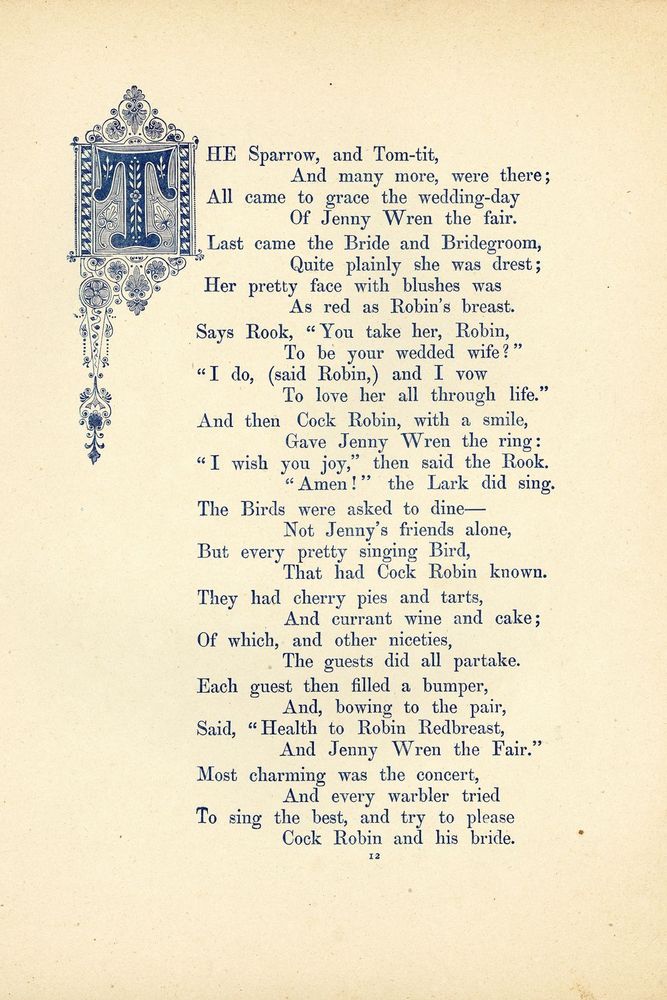 THE Sparrow, and Tom-tit,
And many more, were there;
All came to grace the wedding-day
Of Jenny Wren the fair.
Last came the Bride and Bridegroom,
Quite plainly she was drest;
Her pretty face with blushes was
As red as Robin's breast.
Says Rook, “You take her, Robin,
To be your wedded wife?”
“I do, (said Robin,) and I vow
To love her all through life.”
And then Cock Robin, with a smile,
Gave Jenny Wren the ring:
“I wish you joy,” then said the Rook.
“Amen!” the Lark did sing.
The Birds were asked to dine—
Not Jenny's friends alone,
But every pretty singing Bird,
That had Cock Robin known.
They had cherry pies and tarts,
And currant wine and cake;
Of which, and other niceties,
The guests did all partake.
Each guest then filled a bumper,
And, bowing to the pair,
Said, “Health to Robin Redbreast,
And Jenny Wren the Fair.”
Most charming was the concert,
And every warbler tried
To sing the best, and try to please
Cock Robin and his bride.
12